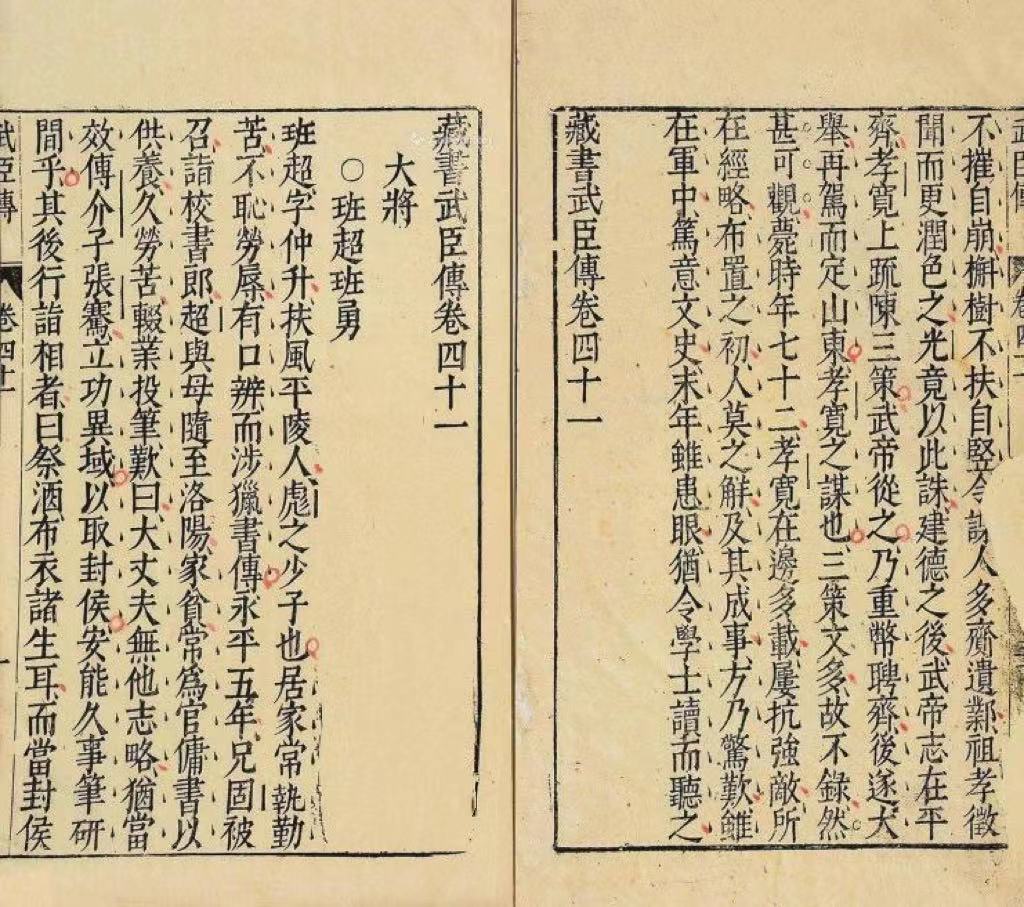 武臣傳 卷四十
不摧自崩槲樹不扶自竪令人多齎遺鄴祖孝徵
聞而更潤色之光竟以此誅建德之後武帝志在平
齊孝寬上疏陳三策武帝從之乃重幣聘齊後遂大
舉再駕而定山東孝寬之謀也三策文多故不錄然
甚可觀薨時年七十二孝寬在邊多載屢抗強敵所
在經略布置之初人莫之解及其成事方乃驚歎雖
在軍中篤意文史末年雖患眼猶令學士讀而聽之
藏書武臣傳卷四十一
藏書武臣傳卷四十一
大將
○班超班勇
班超字仲升扶風平陵人彪之少子也居家常執勤
苦不恥勞辱有口辨而涉獵書傳永平五年兄固被
召詣校書郎超與母隨至洛陽家貧常爲官傭書以
供養久勞苦輟業投筆歎曰大丈夫無他志略猶當
效傅介子張騫立功異域以取封侯安能久事筆研
間乎其後行詣相者曰祭酒布衣諸生耳而當封侯
武臣傳 卷四十 一